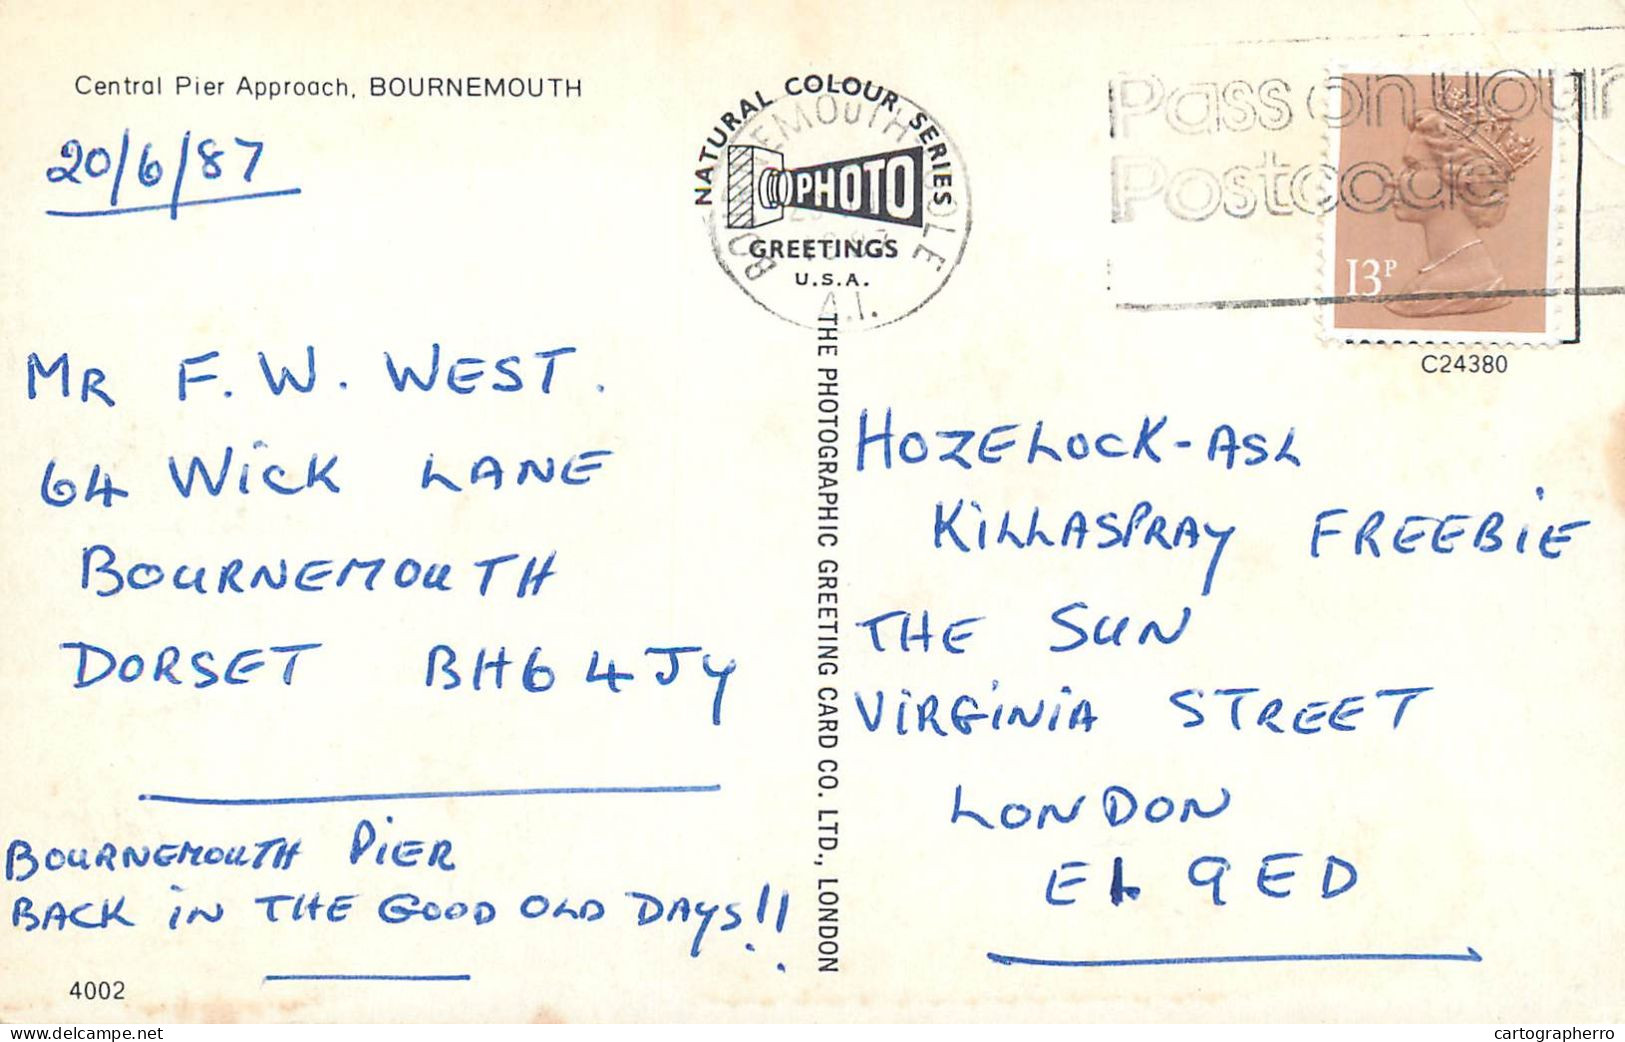 Central Pier Approach, BOURNEMOUTH
20/6/87
MR F. W. WEST.
64 WiCK LANE
BOURNEMOUTH
DORSET BH6 4JY
BOURNEMOUTH PiER
BACK iN THE GOOD OLD DAYS!!
4002
NATURAL COLOUR SERIES
PHOTO
GREETINGS
U.S.A.
BOURNEMOUTH POOLE
A.I.
THE PHOTOGRAPHIC GREETING CARD CO. LTD., LONDON
Pass on your
Postcode
13P
C24380
HOZELOCK-ASL
KiLLASPRAY FREEBiE
THE SUN
ViRGiNiA STREET
LONDON
E1 9ED
delcampe.net
cartographerro